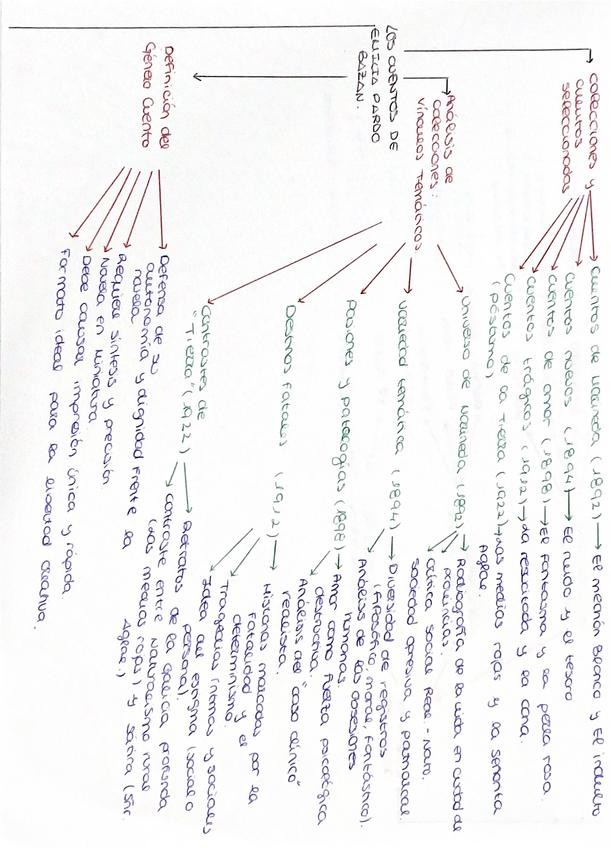 LOS CUENTOS DE
EMILIA PARDO
BAZAN.
Colecciones y
cuentos
seleccionados
Cuentos de Marineda (1892) → El mechón Blanco y El indulto
Cuentos nuevos (1894) → El ruido y el tesoro
Cuentos de amor (1898) → El fantasma y la perla rosa.
Cuentos trágicos (1912) → La resucitada y la cana.
Cuentos de la Tierra (1922) → Las medias rojas y la señorita
(póstumo)
Aglae.
Análisis de
colecciones:
vínculos temáticos
Universo de Marineda (1892)
Radiografía de la vida en ciudad de
provincias.
Crítica social Real.-Natu.
Sociedad opresiva y patriarcal
Variedad temática (1894)
Diversidad de registros
(filosófico, moral, fantástico).
Análisis de las obsesiones
humanas.
Pasiones y patologías (1898)
Amor como fuerza psicológica
destructiva.
Análisis del "caso clínico"
realista.
Destinos fatales (1912)
Historias marcadas por la
fatalidad y el
determinismo.
Tragedias íntimas y sociales
Idea del estigma (social o
personal).
Contrastes de
"Tierra" (1922)
Retratos de la Galicia profunda
Contraste entre Naturalismo rural
(Las medias rojas) y sátira (Sñr.
Aglae.)
Definición del
Género Cuento
Defensa de su
autonomía y dignidad frente la
novela
Requiere síntesis y precisión
Novela en miniatura
Debe causar impresión única y rápida
Formato ideal para la libertad creativa.